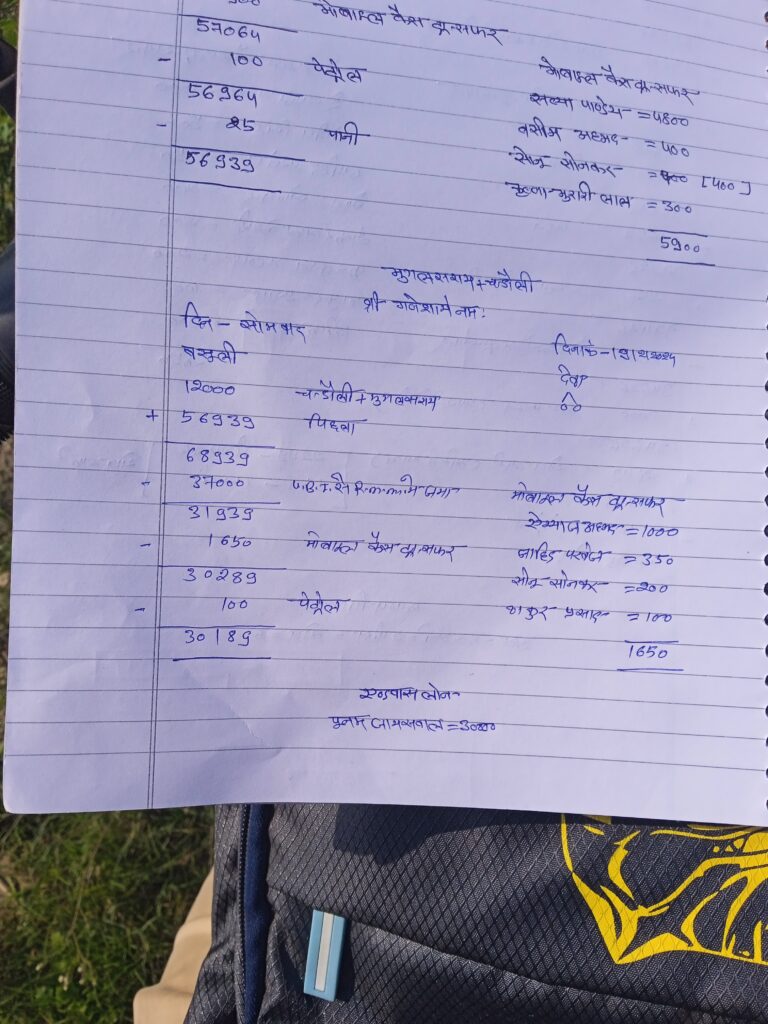 मोबाइल कैस ट्रान्सफर
57064
- 100 पेट्रोल
56964
- 25 पानी
56939
मोबाइल कैस ट्रान्सफर
सत्या पाण्डेय = 4800
वसीम अहमद = 400
सोनू सोनकर = [400]
कृष्णा मुरारी लाल = 300
5900
मुगलसराय + चन्दौली
श्री गनेशाय नमः
दिन - सोमवार
दिनांक -
वसूली
12000 चन्दौली + मुगलसराय
+ 56939 पिछला
68939
- 37000 से में जमा
31939
- 1650 मोबाइल कैस ट्रान्सफर
30289
- 100 पेट्रोल
30189
मोबाइल कैस ट्रान्सफर
अहमद = 1000
जाहिद परवेज = 350
सोनू सोनकर = 200
ठाकुर प्रसाद = 100
1650
एडवांस लोन -
पूनम जायसवाल = 30000